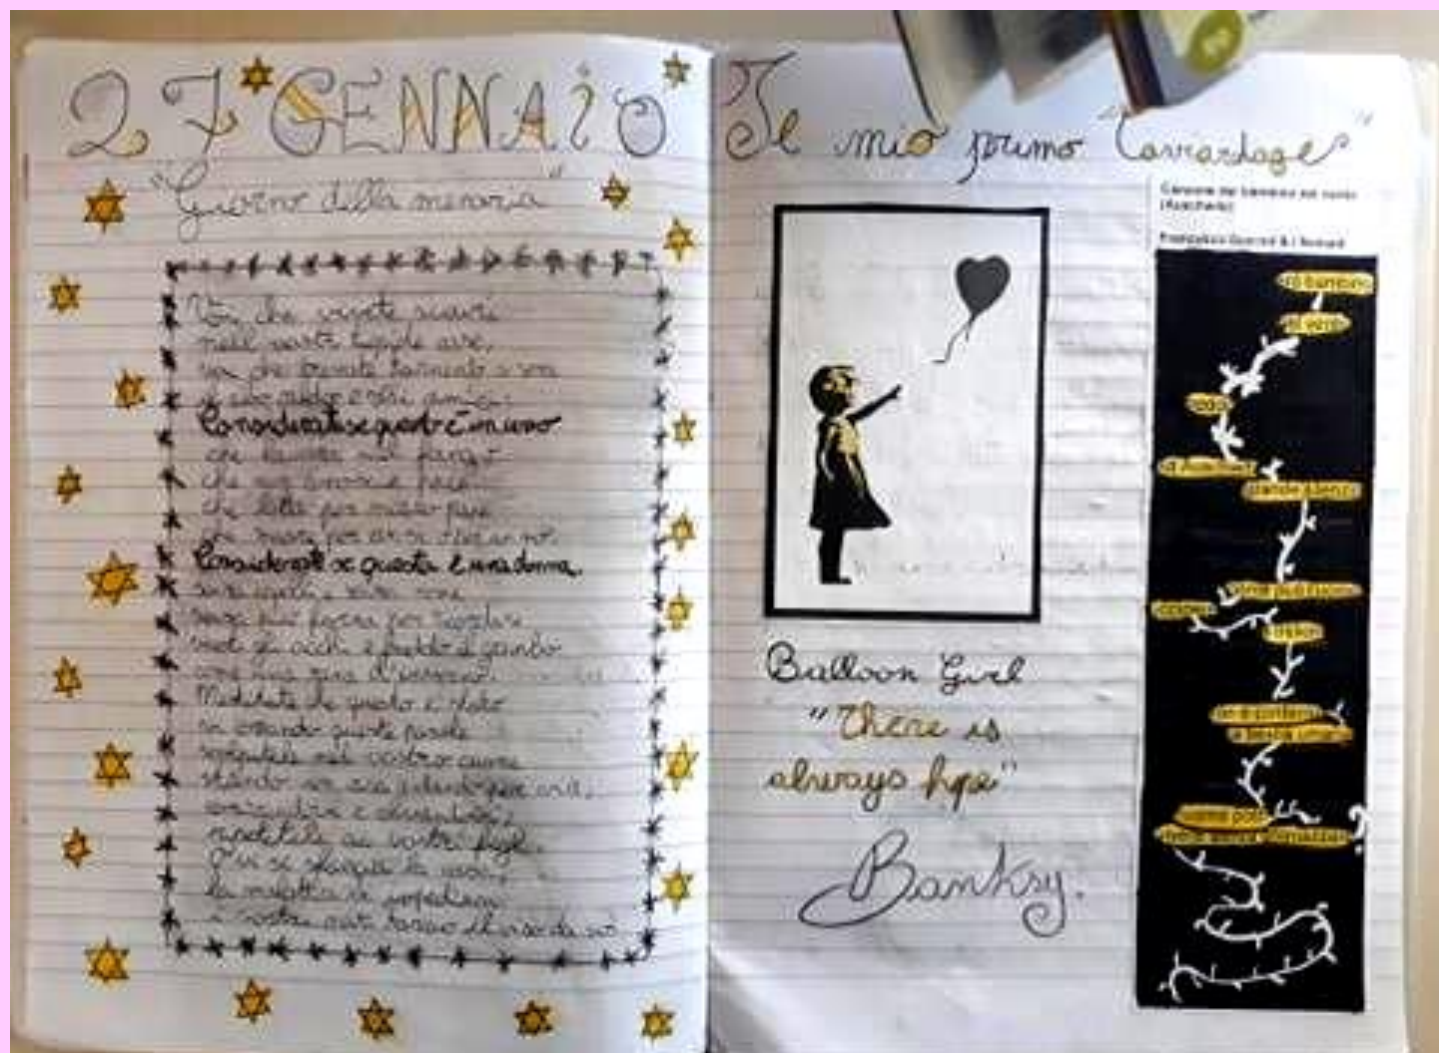 27 GENNAiO
"Giorno della memoria"
Voi che vivete sicuri
nelle vostre tiepide case,
voi che trovate tornando a sera
il cibo caldo e visi amici:
Considerate se questo è un uomo
che lavora nel fango
che non conosce pace
che lotta per mezzo pane
che muore per un si o per un no.
Considerate se questa è una donna,
senza capelli e senza nome
senza più forza per ricordare
vuoti gli occhi e freddo il grembo
come una rana d'inverno.
Meditate che questo è stato
vi comando queste parole
scolpitele nel vostro cuore
stando in casa andando per via,
coricandovi e alzandovi,
ripetetele ai vostri figli.
O vi si sfaccia la casa,
la malattia vi impedisca
i vostri nati torcano il viso da voi
Il mio primo "Caviardage"
Canzone del bambino nel vento
(Auschwitz)
Francesco Guccini &
bambino
vento
Auschwitz
Balloon Girl
"There is
always hope"
Banksy.